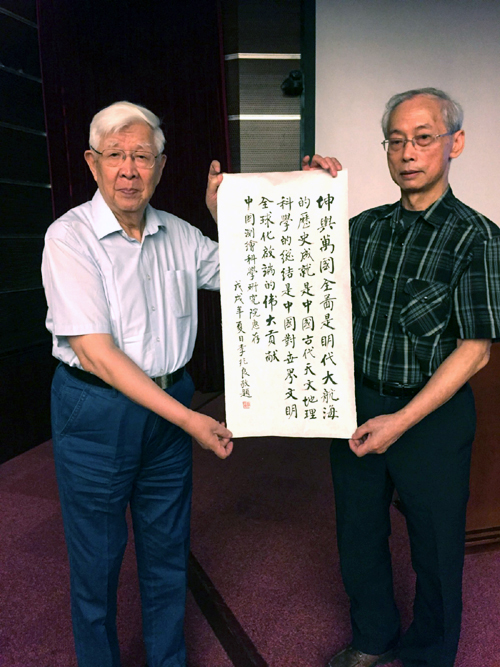 坤輿萬國全圖是明代大航海
的歷史成就是中國古代天文地理
科學的總結是中國對世界文明
全球化啟端的偉大貢獻
中國測繪科學研究院惠存
戊戌年夏日李兆良敬題